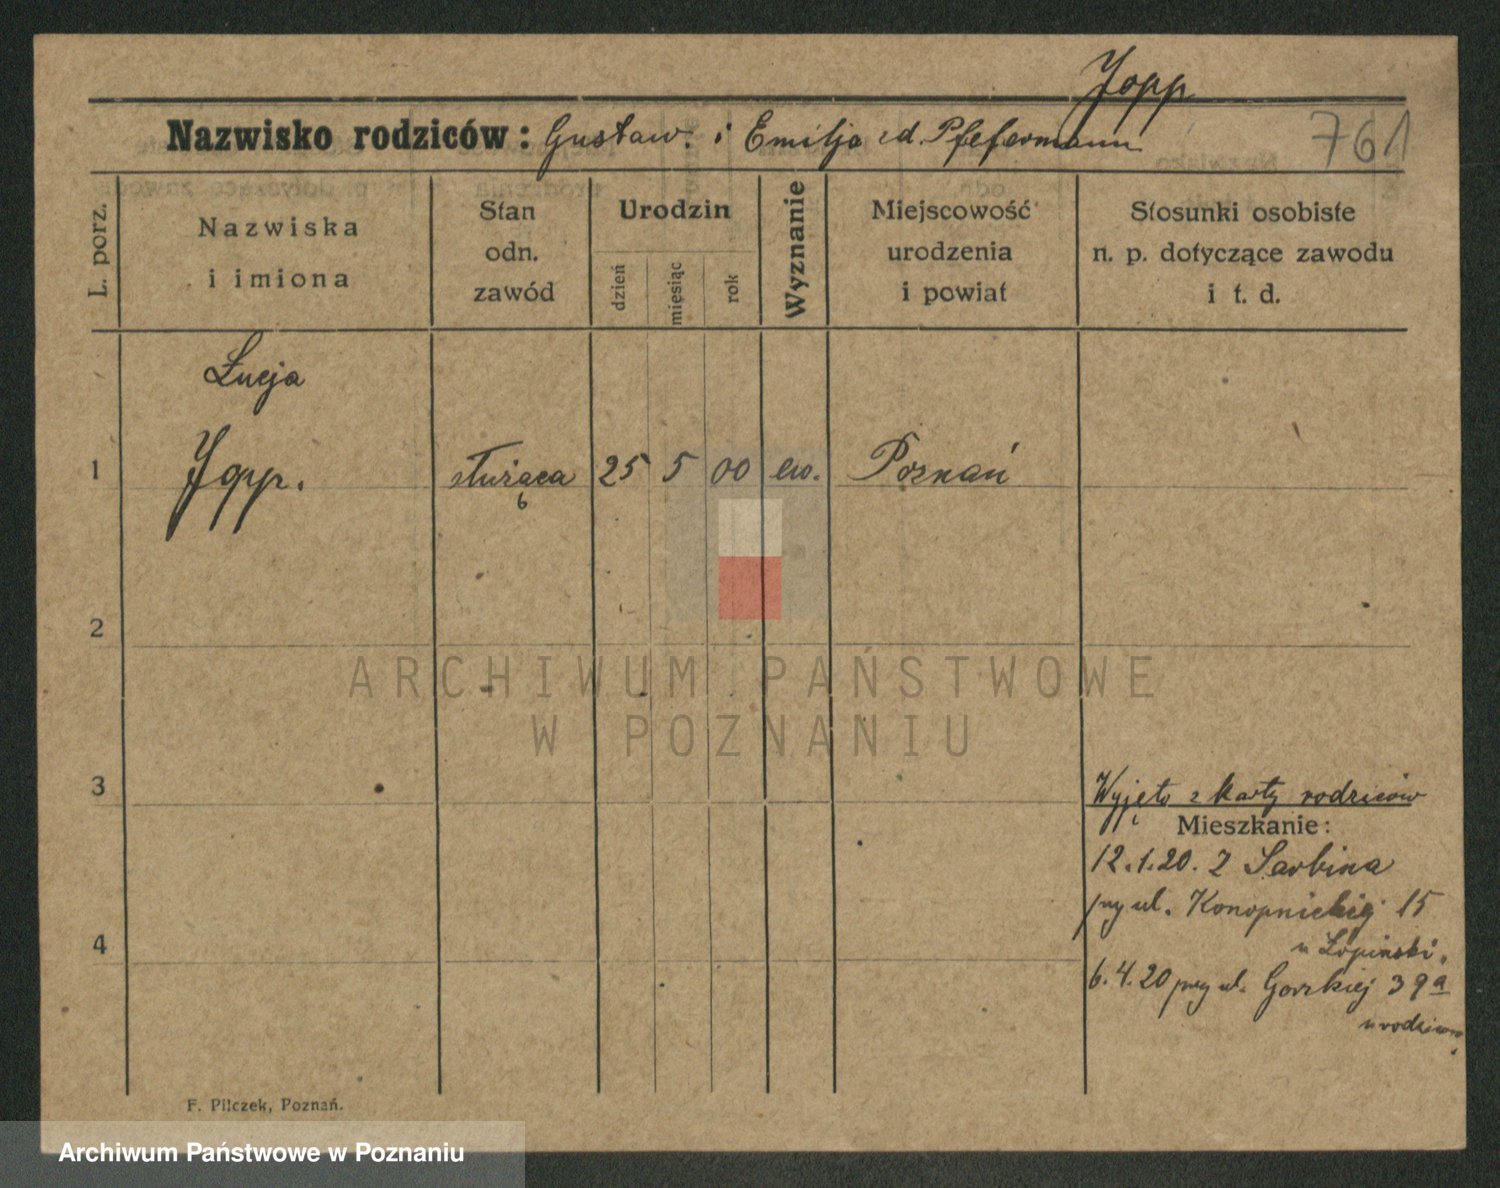 Jopp
Nazwisko rodziców: Gustaw i Emilja zd. Pfefermann
761
L. porz.
Nazwiska
i imiona
Stan
odn.
zawód
Urodzin
dzień
miesiąc
rok
Wyznanie
Miejscowość
urodzenia
i powiat
Stosunki osobiste
n. p. dotyczące zawodu
i t. d.
Łucja
1 Jopp. służąca 25 5 00 ew. Poznań
2
ARCHIWUM PAŃSTWOWE
W POZNANIU
3
Wyjęto z karty rodziców
Mieszkanie:
12.1.20. Z Sarbina
przy ul. Konopnickiej 15
4
u Łopiński.
6.4.20 przy ul. Gorzkiej 39a
u rodziców
F. Pilczek, Poznań.
Archiwum Państwowe w Poznaniu